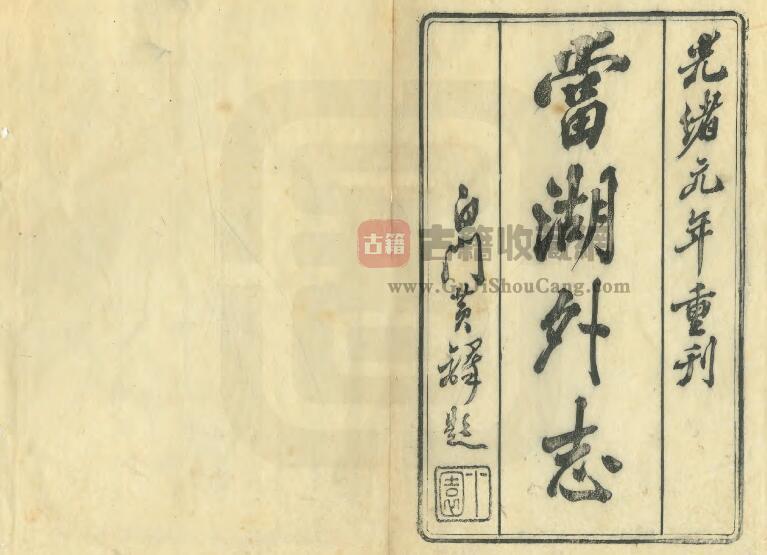 光緒元年重刊
當湖外志
白門黃鐸題
古籍
古籍收藏網
www.GuJiShouCang.com